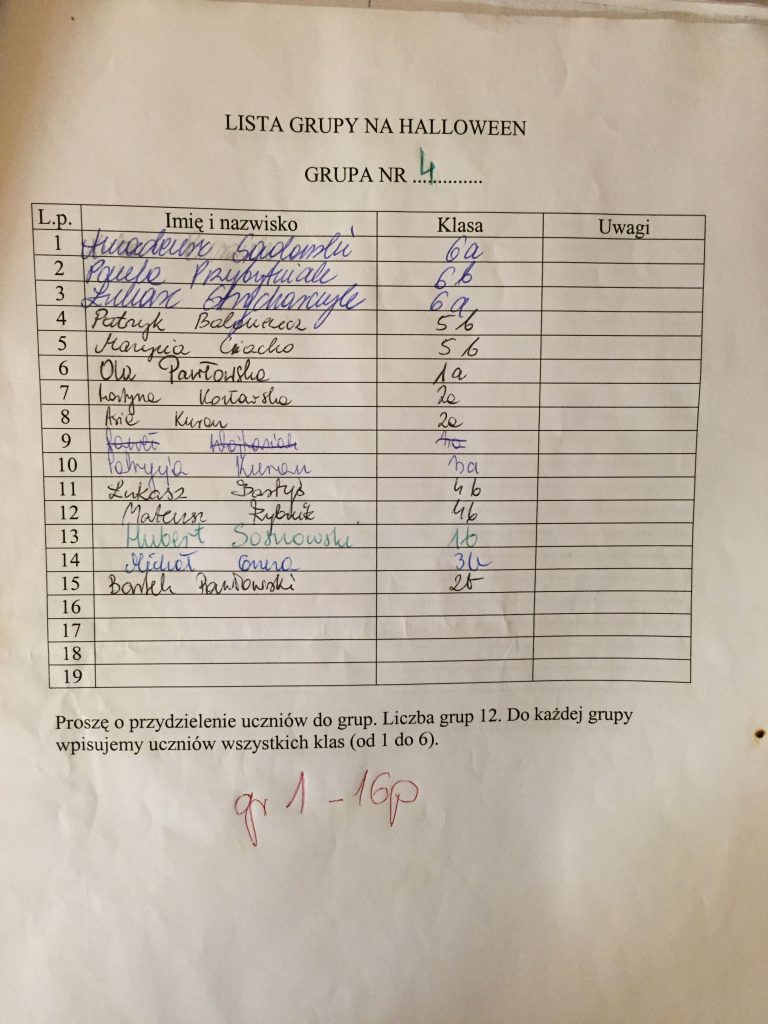 LISTA GRUPY NA HALLOWEEN
GRUPA NR 4
L.p. Imię i nazwisko Klasa Uwagi
1 Amadeusz Sadowski 6a
2 6b
3 Łukasz 6a
4 Patryk 5b
5 Ciacho 5b
6 Ola Pawłowska 1a
7 2a
8 Asia Kuran 2a
9 Paweł
10 Patrycja Kurian 3a
11 Łukasz Bartyś 4b
12 Mateusz Rybnik 4b
13 Hubert Sosnowski 1b
14 Michał 3b
15 Bartek Pawłowski 2b
16
17
18
19
Proszę o przydzielenie uczniów do grup. Liczba grup 12. Do każdej grupy
wpisujemy uczniów wszystkich klas (od 1 do 6).
gr 1 - 16p